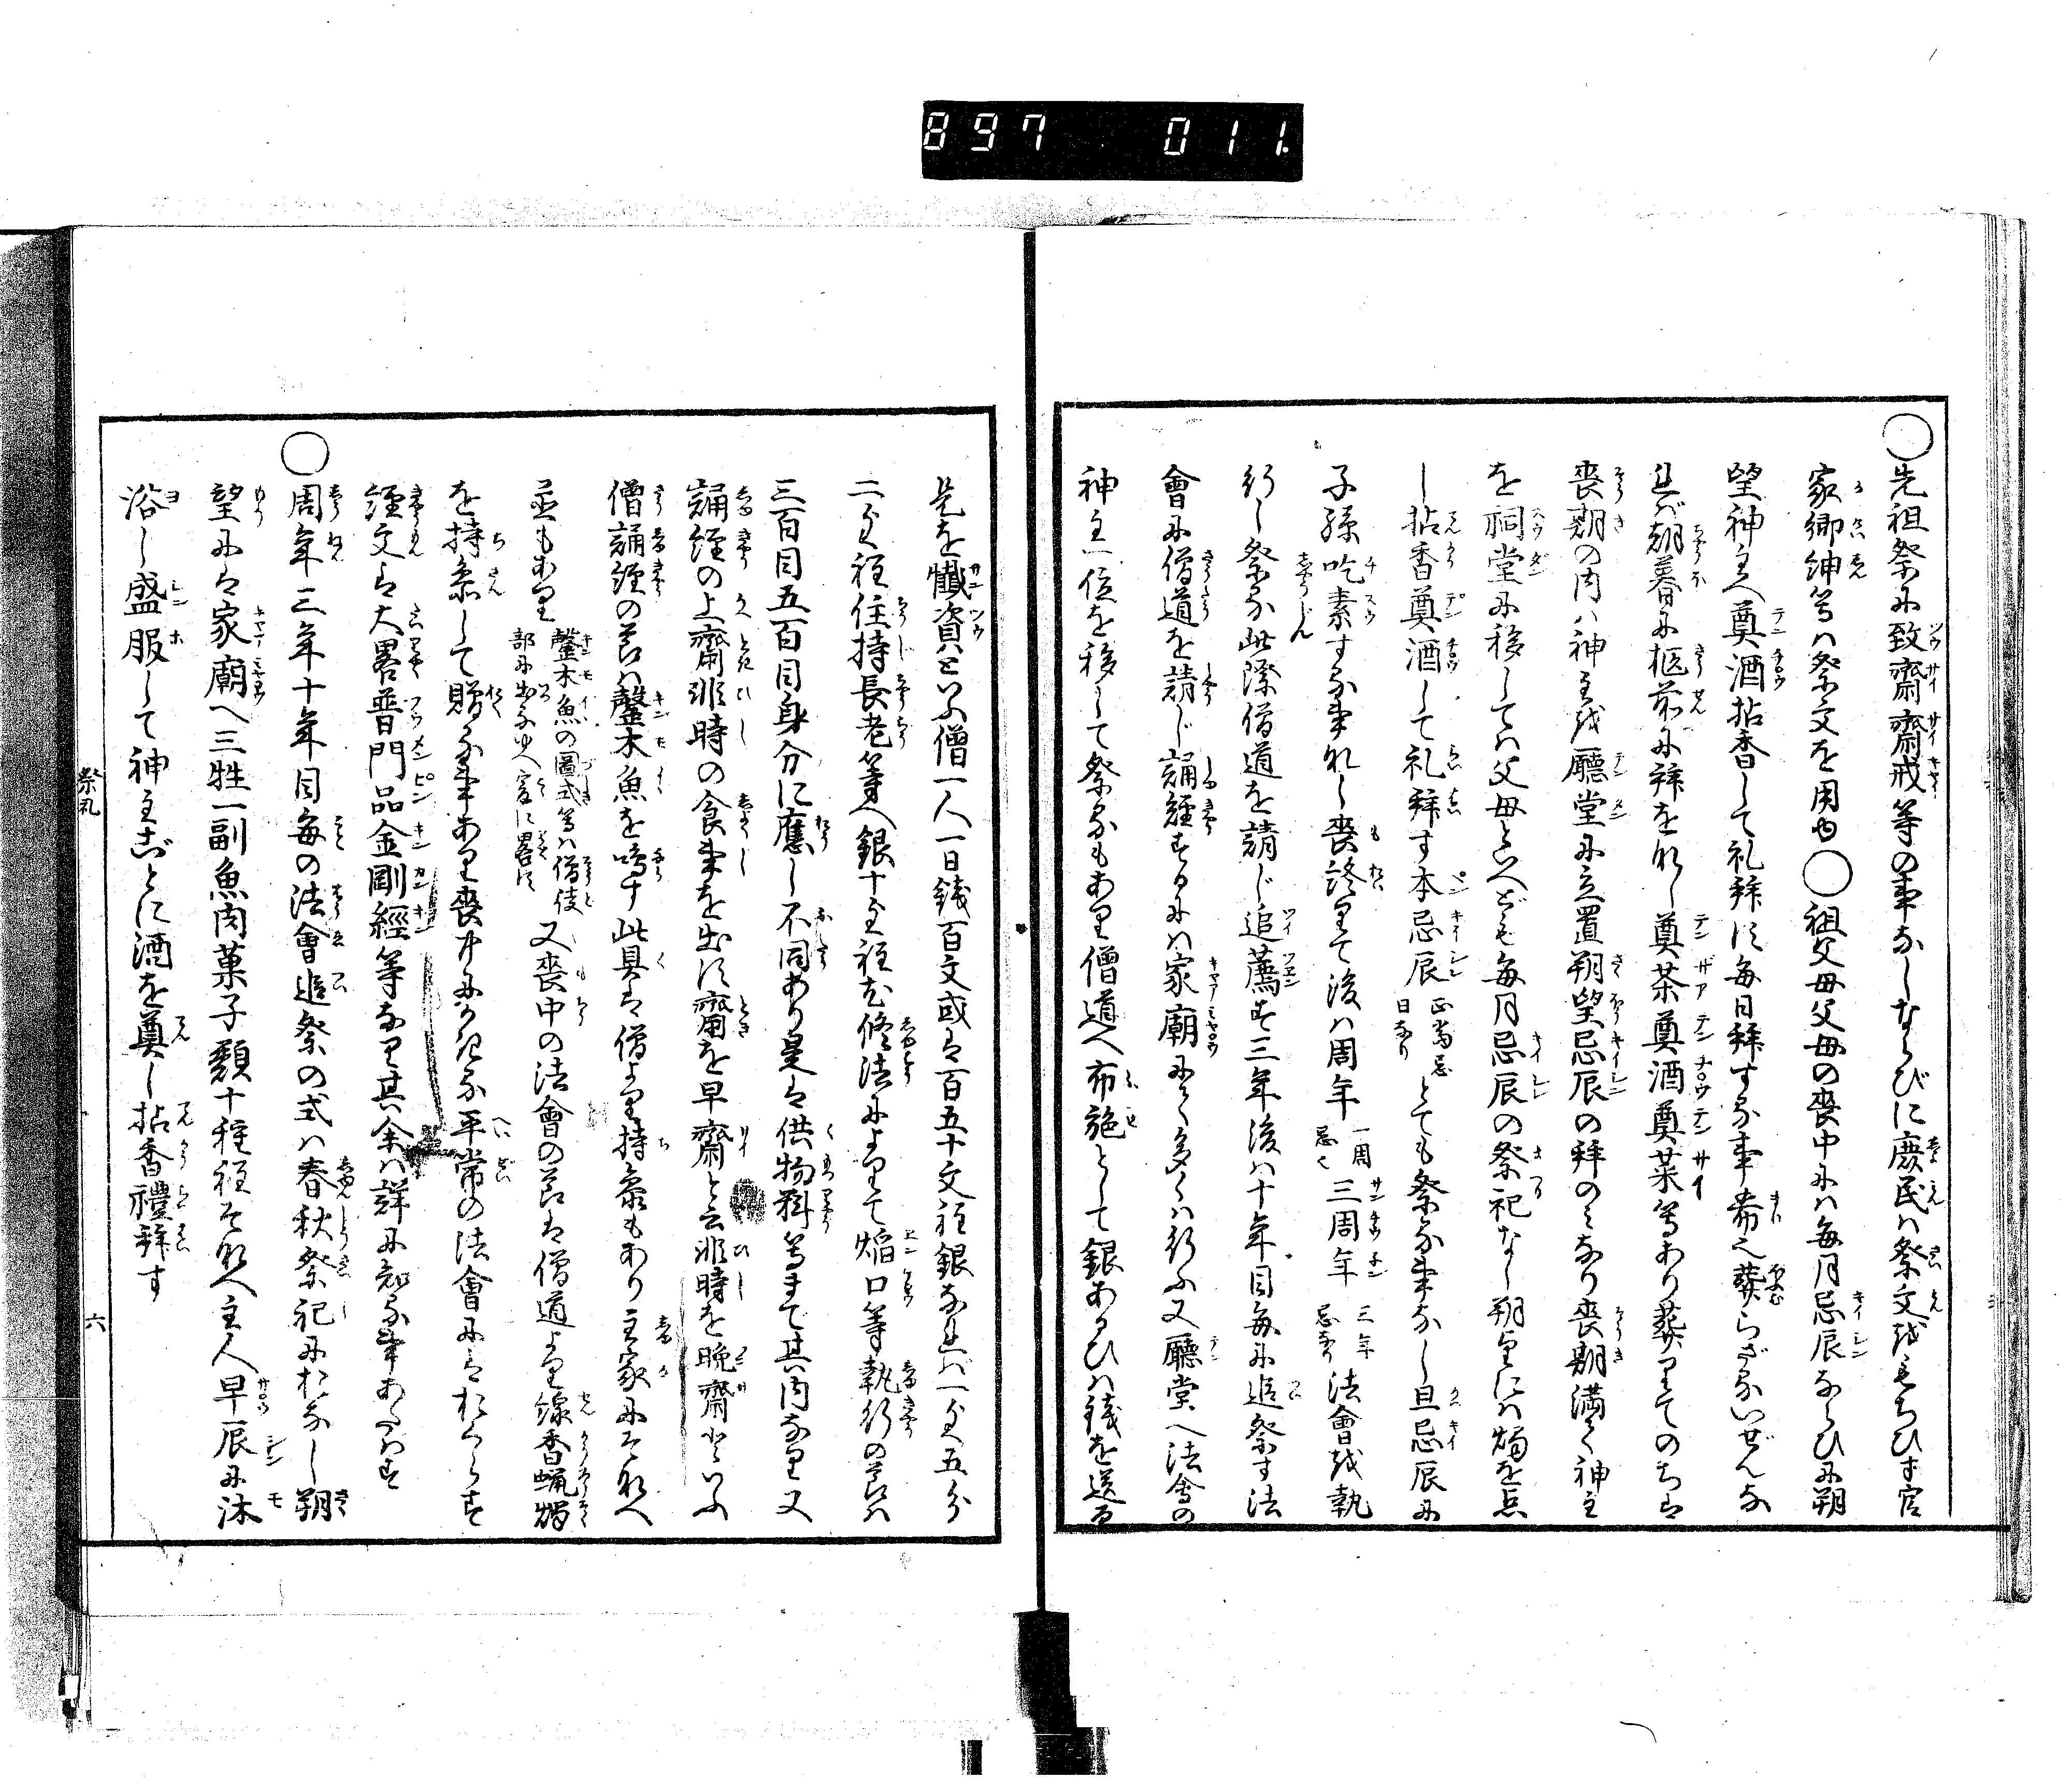 897 011.
○先祖祭に致齋齋戒等の事なしならびに庶民ハ祭文をもちひず官
家郷紳等ハ祭文を用ゆ○祖父母父母の喪中にハ毎月忌辰ならひに朔
望神主へ奠酒拈香して礼拜し毎日拜する事希也葬らざるいぜんな
れバ朝暮に柩前に拜をなし奠茶奠酒奠菜等あり葬りてのちは
喪期の内ハ神主を廳堂に立置朔望忌辰の拜のミなり喪期満て神主
を祠堂に移してハ父母といへども毎月忌辰の祭祀なし朔望にハ燭を点
し拈香奠酒して礼拜す本忌辰正當忌日なりとても祭る事なし且忌辰に
子孫吃素する事なし喪終りて後ハ周年一周忌也三周年三年忌なり法會を執
行し祭る此際僧道を請じ追薦す三年後ハ十年目毎に追祭す法
會に僧道を請じ誦經するにハ家廟にて多くハ行ふ又廳堂へ法會の
神主一位を移して祭るもあり僧道へ布施として銀あるひハ錢を送る
是を懺資といふ僧一人一日錢百文或は百五十文程銀なれバ一匁五分
二匁程住持長老等へ銀十匁程尤修法によりて焔口等執行の節ハ
三百目五百目身分に應し不同あり是は供物料等まで其内なり又
誦經の上齋非時の食事を出す齋を早齋と云非時を晩齋といふ
僧誦經の節ハ磬木魚を鳴す此具は僧より持參もあり主家にそなへ
並もあり磬木魚の圖式等ハ僧徒部に出るゆへ爰に畧す又喪中の法會の節は僧道より線香蝋燭
を持參して贈る事あり喪中にかぎる平常の法會にはおくらず
經文は大畧普門品金剛經等なり其余ハ詳に知る事あたハず
○周年三年十年目毎の法會追祭の式ハ春秋祭祀におなし朔
望には家廟へ三牲一副魚肉菓子類十種程そなへ主人早辰に沐
浴し盛服して神主ごとに酒を奠し拈香禮拜す
祭礼
六